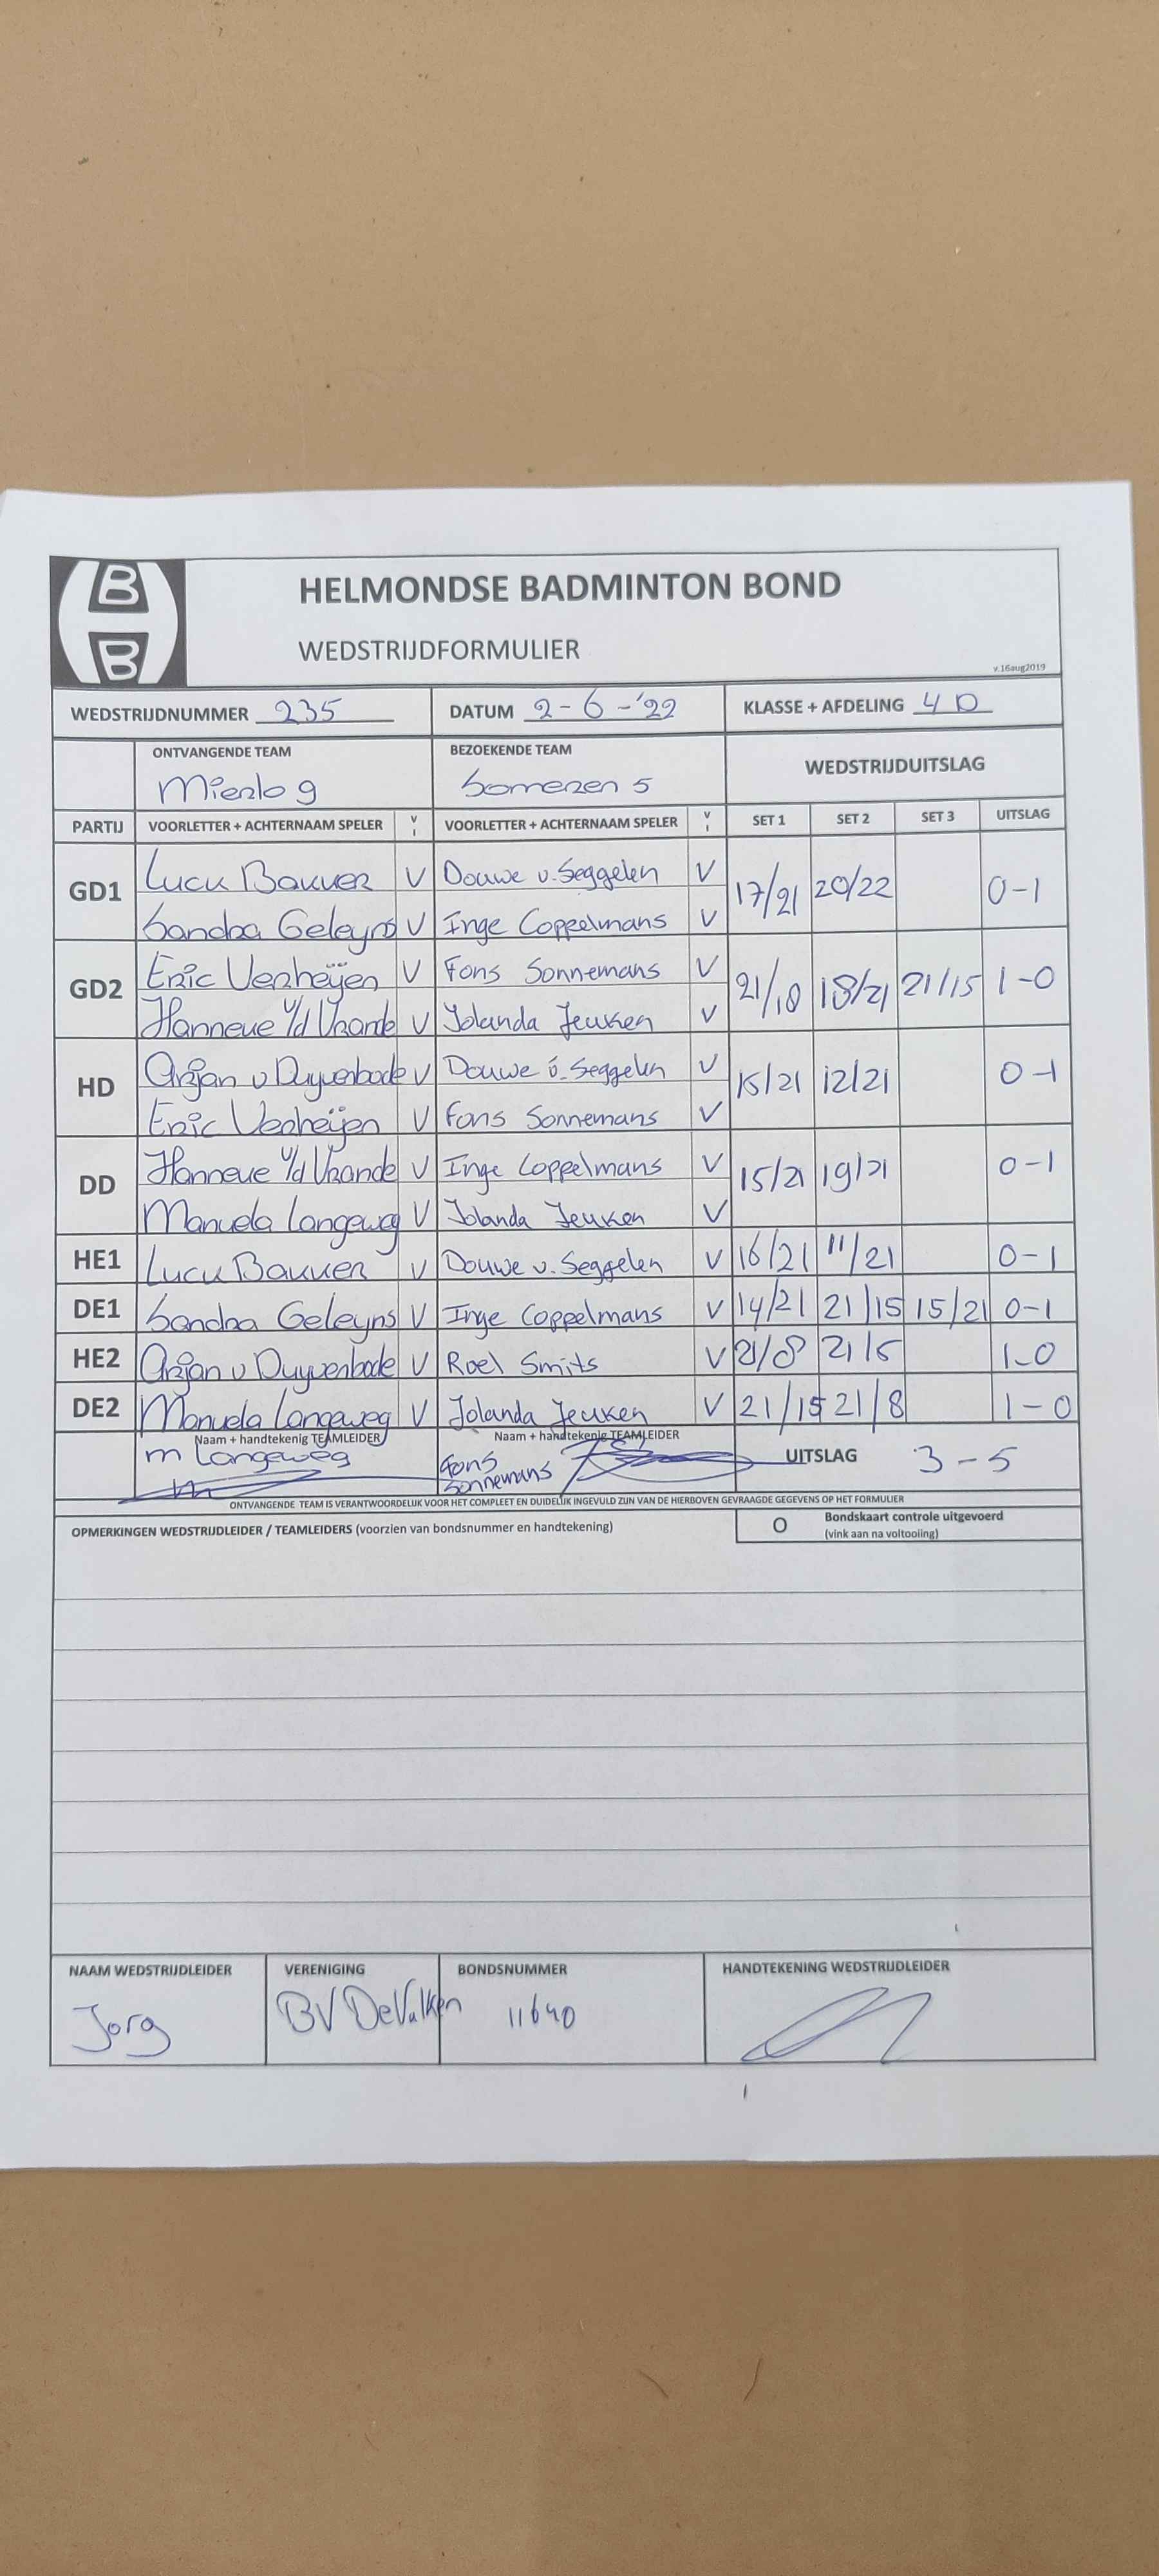 B
B
HELMONDSE BADMINTON BOND
WEDSTRIJDFORMULIER
v.16aug2019
WEDSTRIJDNUMMER 235 DATUM 2-6-'22 KLASSE + AFDELING 4D
ONTVANGENDE TEAM BEZOEKENDE TEAM WEDSTRIJDUITSLAG
Mierlo 9 Someren 5
PARTIJ VOORLETTER + ACHTERNAAM SPELER V I VOORLETTER + ACHTERNAAM SPELER V I SET 1 SET 2 SET 3 UITSLAG
GD1 Lucu Bakker V Douwe v. Seggelen V 17/21 20/22 0-1
Sandra Geleyns V Inge Coppelmans V
GD2 Eric Verheijen V Fons Sonnemans V 21/18 18/21 21/15 1-0
Hanneke v/d Vrande V Jolanda Jeuken V
HD Arjan v Duyvenbode V Douwe v. Seggelen V 15/21 12/21 0-1
Eric Verheijen V Fons Sonnemans V
DD Hanneke v/d Vrande V Inge Coppelmans V 15/21 19/21 0-1
Manuela Langeweg V Jolanda Jeuken V
HE1 Lucu Bakker V Douwe v. Seggelen V 16/21 11/21 0-1
DE1 Sandra Geleyns V Inge Coppelmans V 14/21 21/15 15/21 0-1
HE2 Arjan v Duyvenbode V Roel Smits V 21/8 21/5 1-0
DE2 Manuela Langeweg V Jolanda Jeuken V 21/15 21/8 1-0
Naam + handtekenig TEAMLEIDER Naam + handtekenig TEAMLEIDER
m Langeweg Fons Sonnemans UITSLAG 3-5
ONTVANGENDE TEAM IS VERANTWOORDELIJK VOOR HET COMPLEET EN DUIDELIJK INGEVULD ZIJN VAN DE HIERBOVEN GEVRAAGDE GEGEVENS OP HET FORMULIER
OPMERKINGEN WEDSTRIJDLEIDER / TEAMLEIDERS (voorzien van bondsnummer en handtekening) O Bondskaart controle uitgevoerd
(vink aan na voltooiing)
NAAM WEDSTRIJDLEIDER VERENIGING BONDSNUMMER HANDTEKENING WEDSTRIJDLEIDER
Jorg BV DeValken 11640